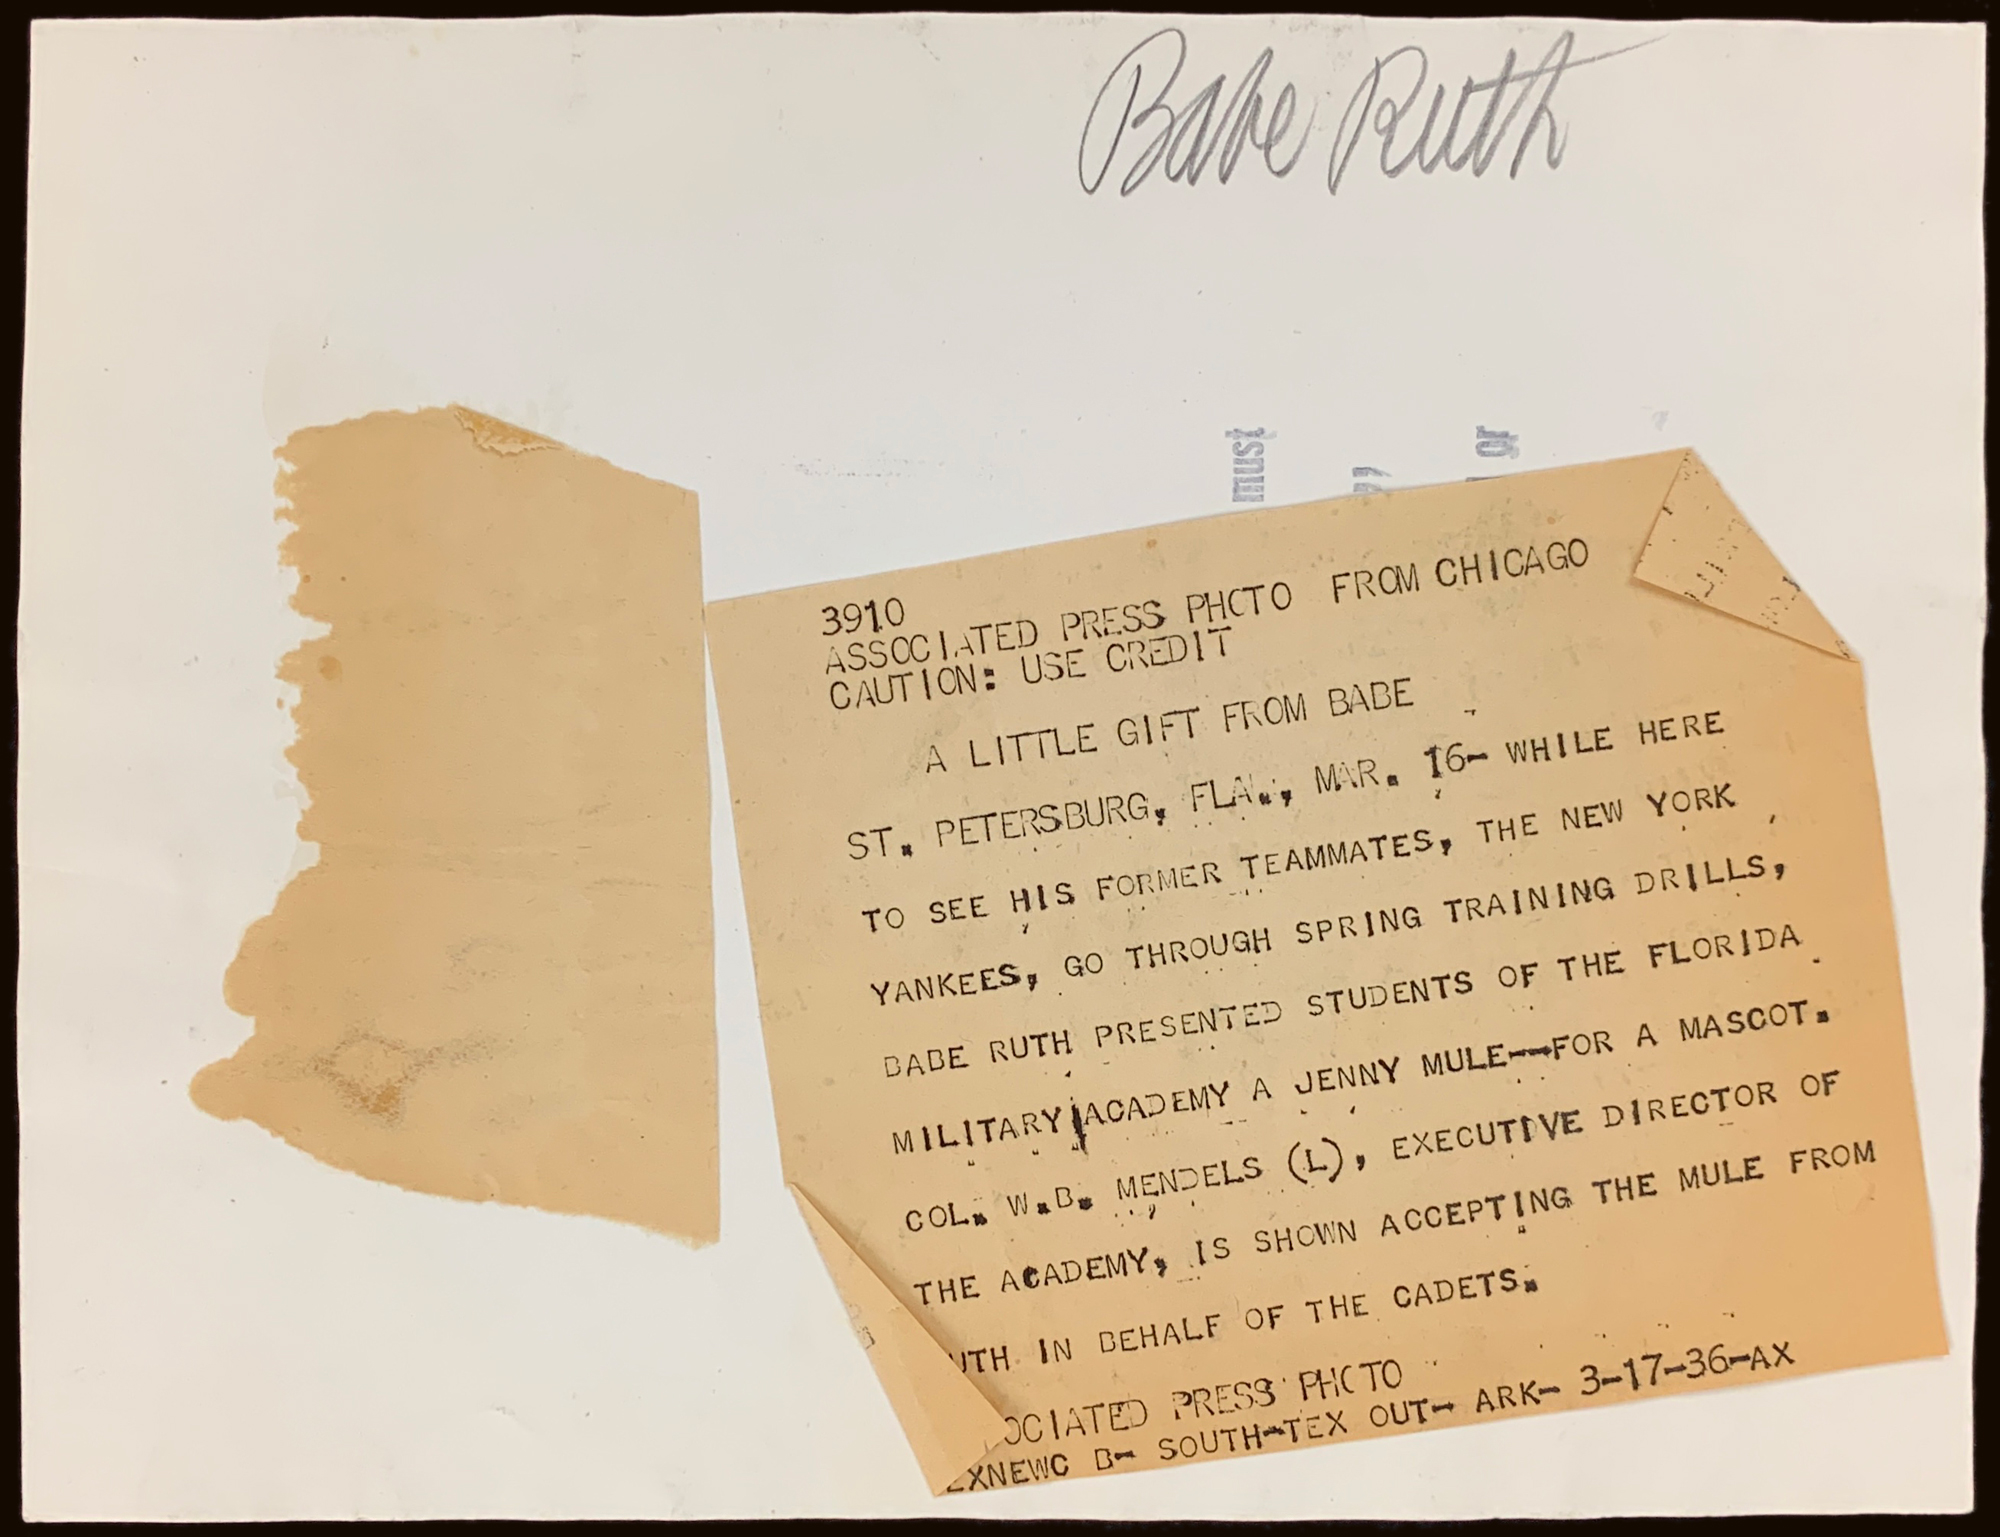 Babe Ruth
must
or
3910
ASSOCIATED PRESS PHOTO FROM CHICAGO
CAUTION: USE CREDIT
A LITTLE GIFT FROM BABE
ST. PETERSBURG, FLA., MAR. 16- WHILE HERE
TO SEE HIS FORMER TEAMMATES, THE NEW YORK
YANKEES, GO THROUGH SPRING TRAINING DRILLS,
BABE RUTH PRESENTED STUDENTS OF THE FLORIDA
MILITARY ACADEMY A JENNY MULE--FOR A MASCOT.
COL. W.B. MENDELS (L), EXECUTIVE DIRECTOR OF
THE ACADEMY, IS SHOWN ACCEPTING THE MULE FROM
UTH IN BEHALF OF THE CADETS.
OCIATED PRESS PHOTO
EXNEWC B- SOUTH-TEX OUT- ARK- 3-17-36-AX